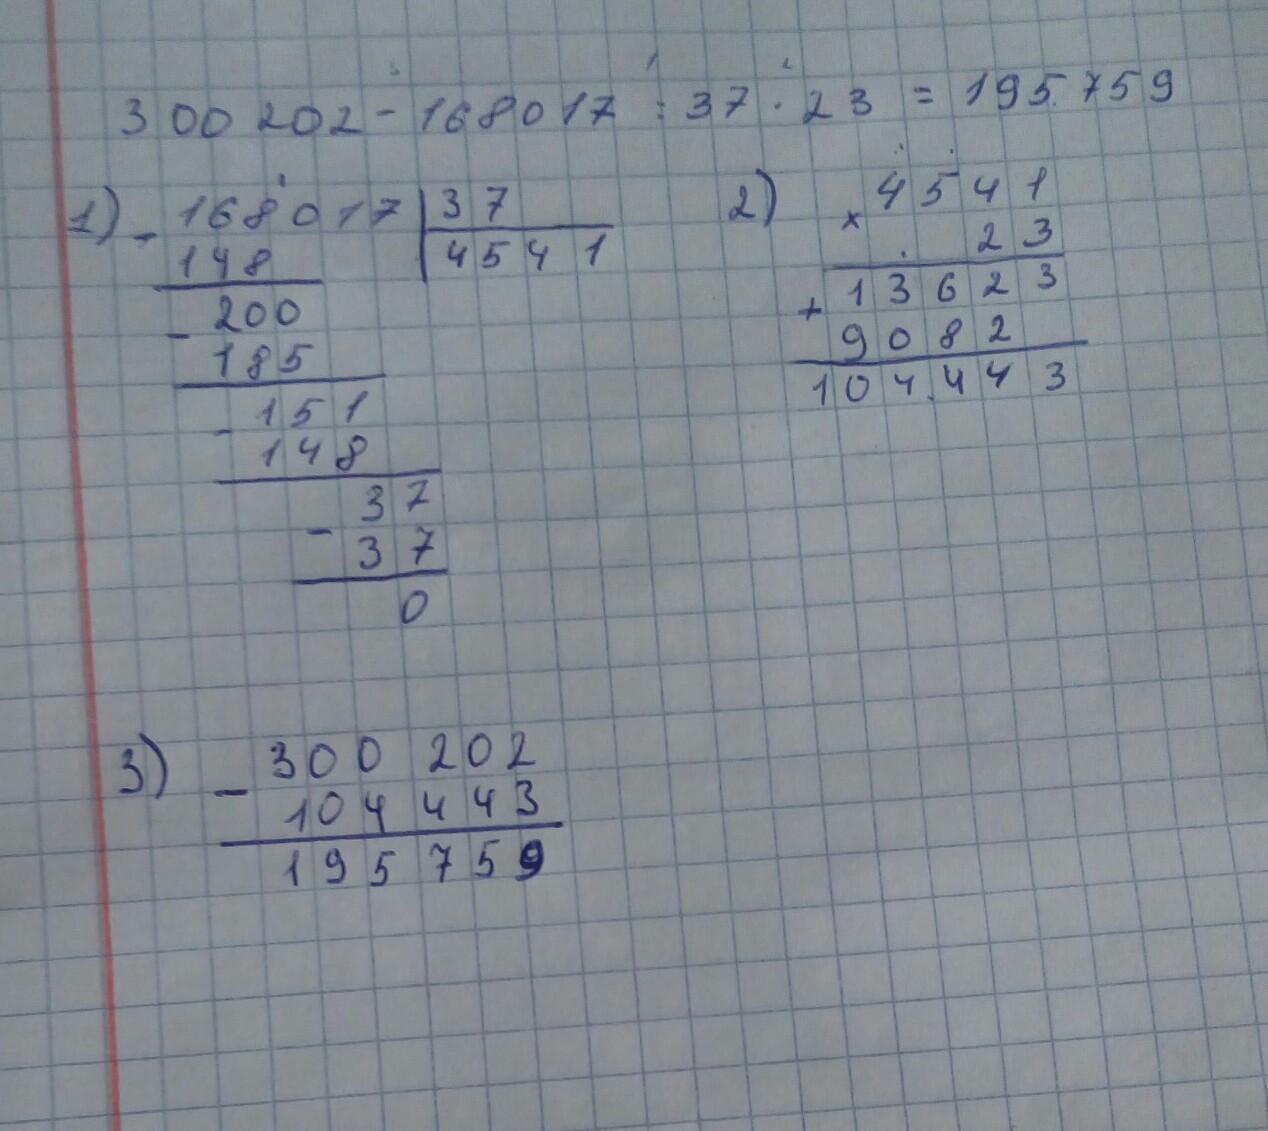 300 202 - 168017 : 37 · 23 = 195 759
1) - 168017 | 37
148 | 4541
- 200
185
- 151
148
- 37
37
0
2) × 4541
23
+ 13623
9082
104443
3) - 300 202
104 443
195 759